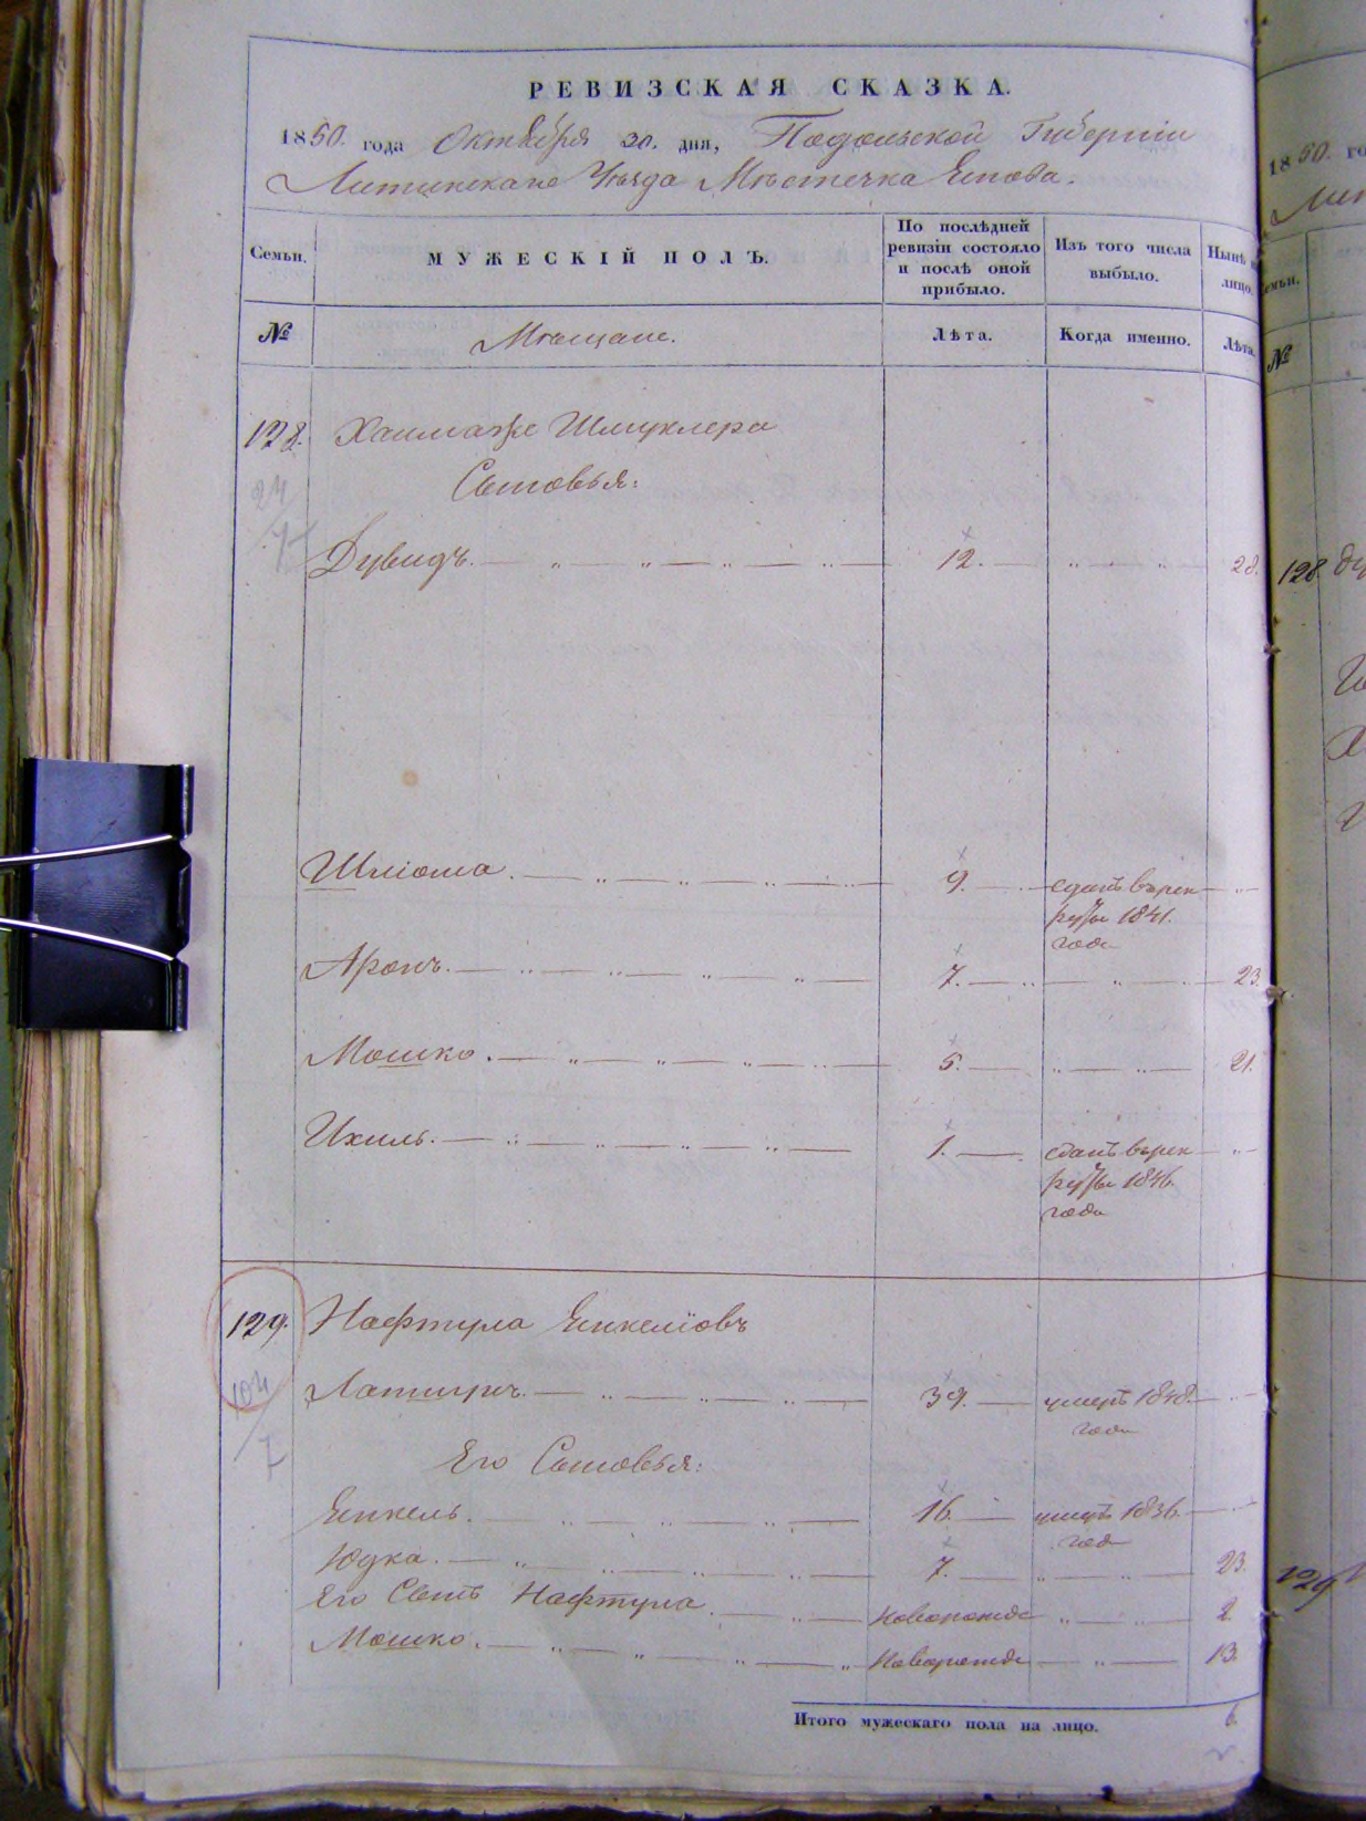 РЕВИЗСКАЯ СКАЗКА.
1850. года Октября 20. дня, Подольской Губернiи
Литинскаго Уѣзда Мѣстечка Янова.
Семьи.
МУЖЕСКIЙ ПОЛЪ.
По послѣдней ревизiи состояло и послѣ оной прибыло.
Изъ того числа выбыло.
Нынѣ
лицо.
№
Мѣщане.
Лѣта.
Когда именно.
Лѣта.
128. Хаима же Шмуклера
24
Сыновья:
Дувидъ. 12. 28.
Шлiома. 9. сданъ въ рек
руты 1841.
года
Аронъ. 7. 23.
Мошко. 5. 21.
Ихиль. 1. сданъ въ рек
руты 1846.
года
129. Нафтула Янкелiовъ
104
7
39. умеръ 1848.
года
Его Сыновья:
Янкель. 16. умеръ 1836.
года
Юдка. 7. 23.
Его Сынъ Нафтула. новорожде 2.
Мошко. новорожде 13.
Итого мужескаго пола на лицо. 6.
1850. го
емьи.
№
128. Ду
129